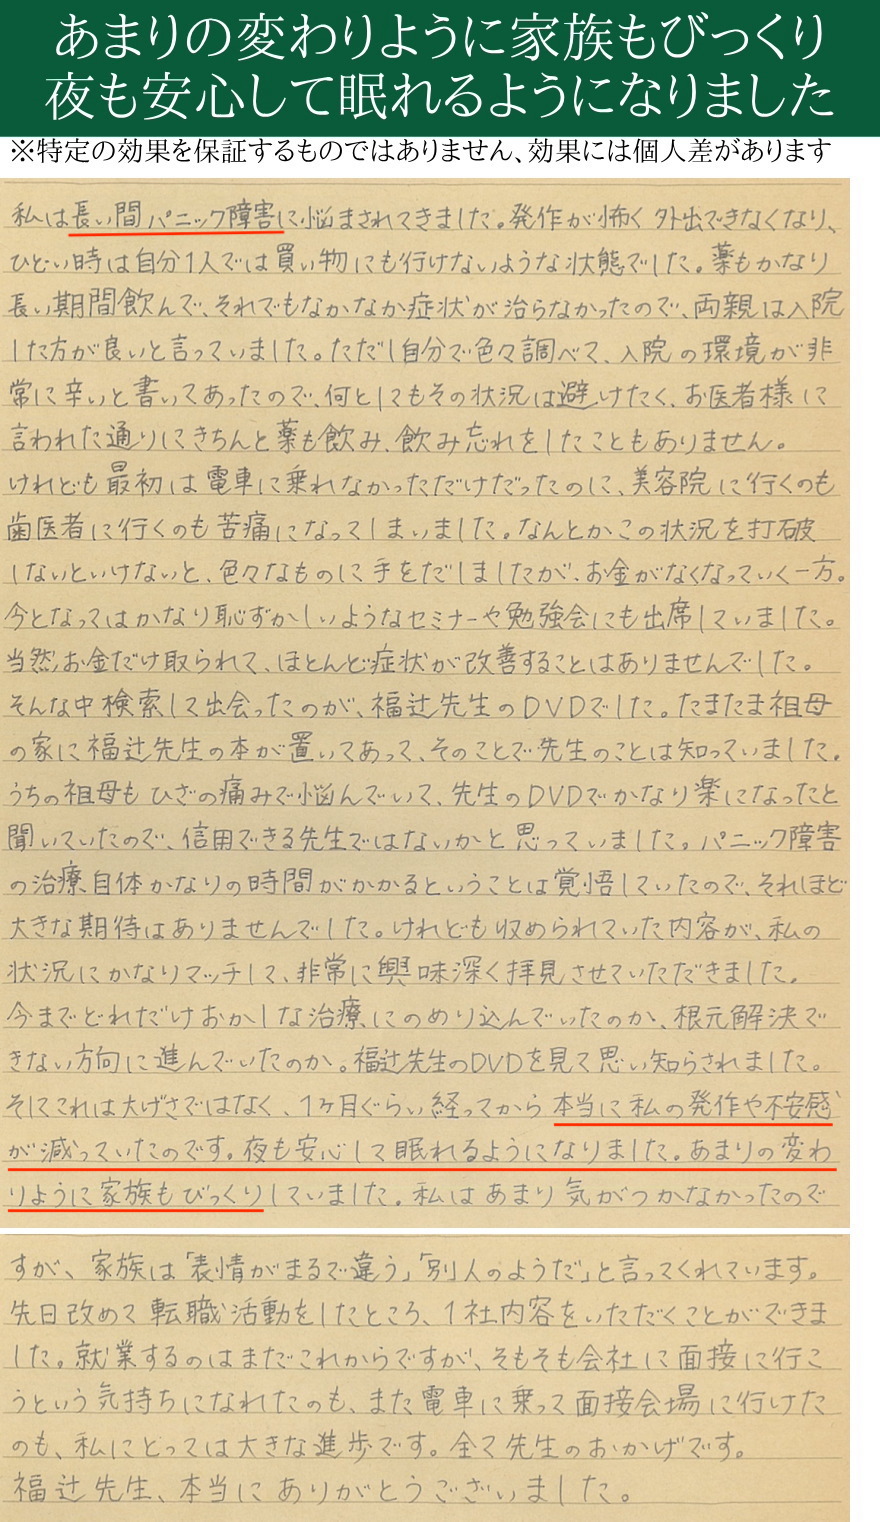 あまりの変わりように家族もびっくり
夜も安心して眠れるようになりました
※特定の効果を保証するものではありません、効果には個人差があります
私は長い間パニック障害に悩まされてきました。発作が怖く外出できなくなり、
ひどい時は自分1人では買い物にも行けないような状態でした。薬もかなり
長い期間飲んで、それでもなかなか症状が治らなかったので、両親は入院
した方が良いと言っていました。ただし自分で色々調べて、入院の環境が非
常に辛いと書いてあったので、何としてもその状況は避けたく、お医者様に
言われた通りにきちんと薬も飲み、飲み忘れをしたこともありません。
けれども最初は電車に乗れなかっただけだったのに、美容院に行くのも
歯医者に行くのも苦痛になってしまいました。なんとかこの状況を打破
しないといけないと、色々なものに手をだしましたが、お金がなくなっていく一方。
今となってはかなり恥ずかしいようなセミナーや勉強会にも出席していました。
当然お金だけ取られて、ほとんど症状が改善することはありませんでした。
そんな中検索して出会ったのが、福辻先生のDVDでした。たまたま祖母
の家に福辻先生の本が置いてあって、そのことで先生のことは知っていました。
うちの祖母もひざの痛みで悩んでいて、先生のDVDでかなり楽になったと
聞いていたので、信用できる先生ではないかと思っていました。パニック障害
の治療自体かなりの時間がかかるということは覚悟していたので、それほど
大きな期待はありませんでした。けれども収められていた内容が、私の
状況にかなりマッチして、非常に興味深く拝見させていただきました。
今までどれだけおかしな治療にのめり込んでいたのか、根元解決で
きない方向に進んでいたのか。福辻先生のDVDを見て思い知らされました。
そしてこれは大げさではなく、1ヶ月ぐらい経ってから本当に私の発作や不安感
が減っていたのです。夜も安心して眠れるようになりました。あまりの変わ
りように家族もびっくりしていました。私はあまり気がつかなかったので
すが、家族は「表情がまるで違う」「別人のようだ」と言ってくれています。
先日改めて転職活動をしたところ、1社内容をいただくことができま
した。就業するのはまだこれからですが、そもそも会社に面接に行こ
うという気持ちになれたのも、また電車に乗って面接会場に行けた
のも、私にとっては大きな進歩です。全て先生のおかげです。
福辻先生、本当にありがとうございました。